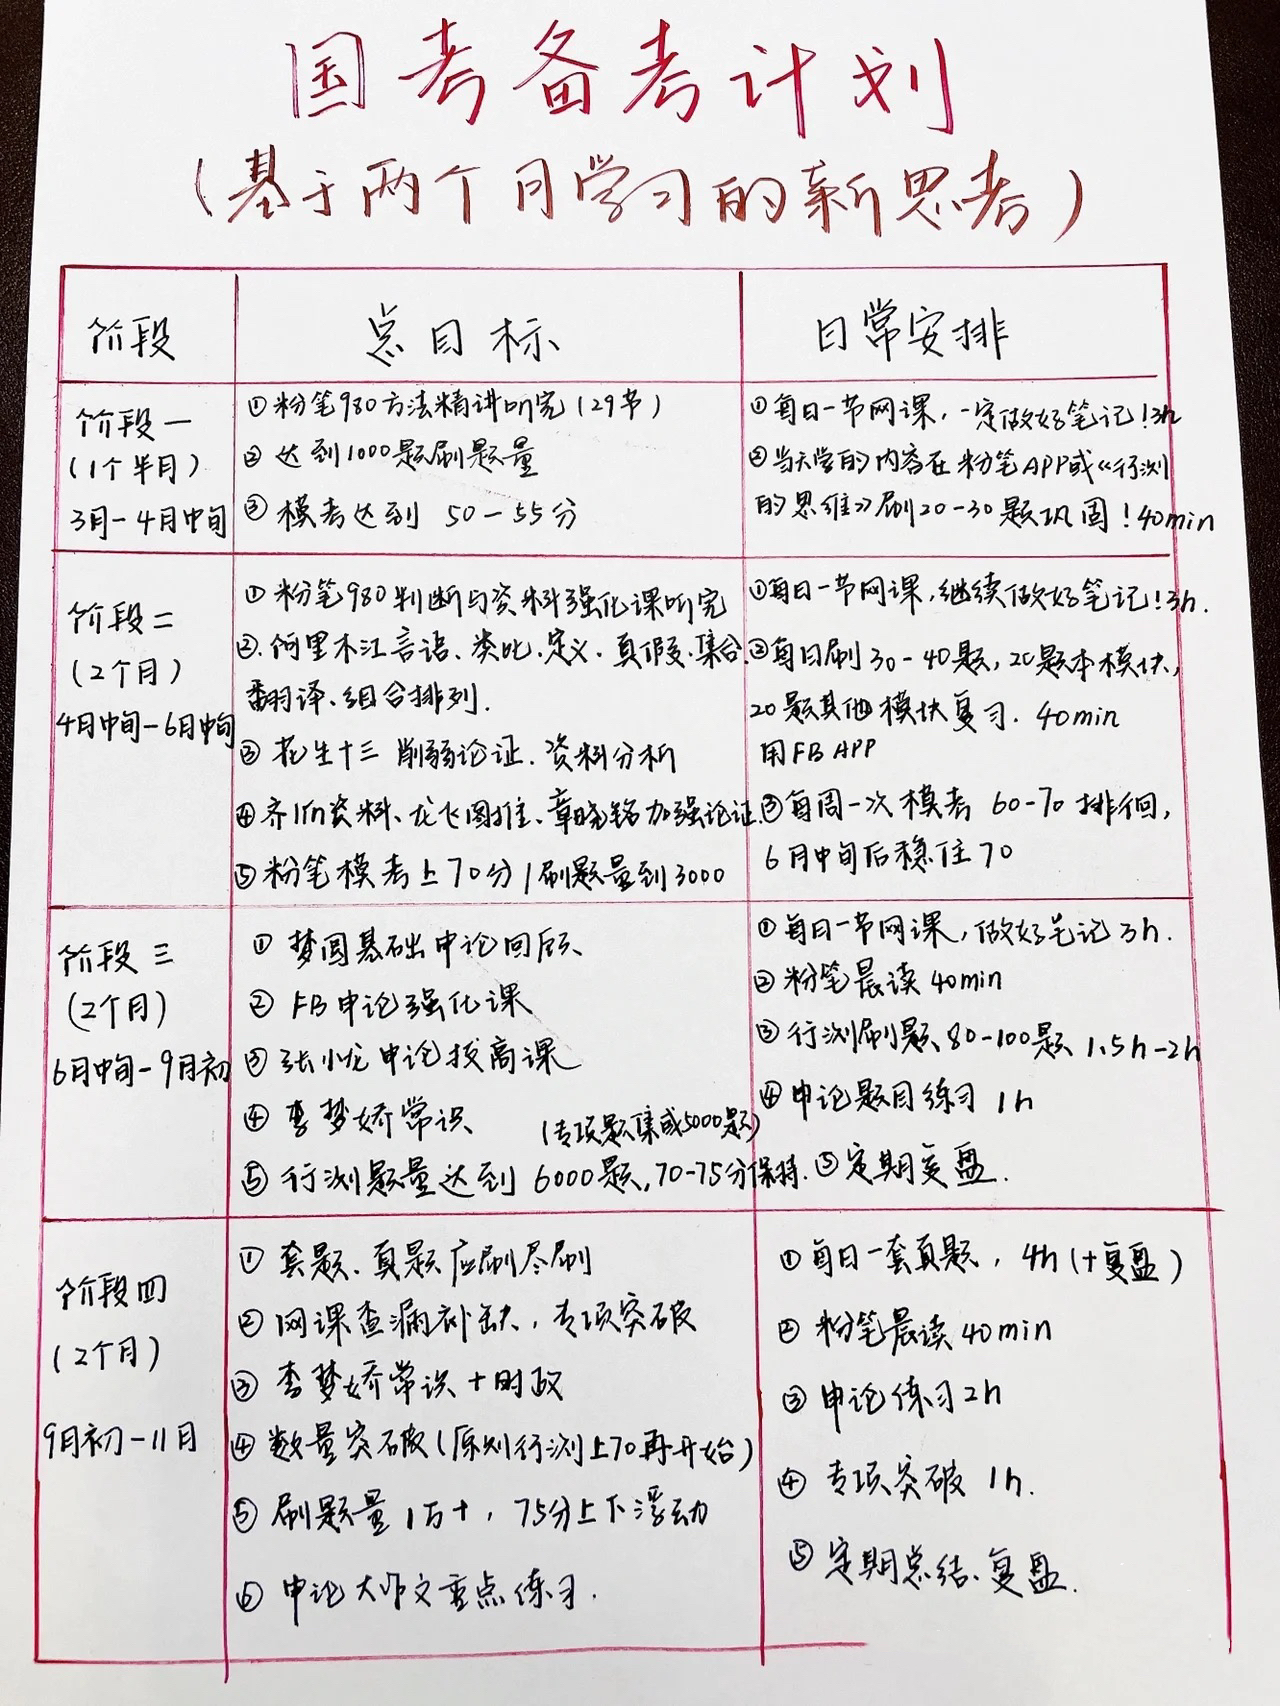 国考备考计划
(基于两个月学习的新思考)
阶段
总目标
日常安排
阶段一
(1个半月)
3月-4月中旬
①粉笔980方法精讲听完(29节)
②达到1000题刷题量
③模考达到 50-55分
①每日一节网课,一定做好笔记!3h
②当天学的内容在粉笔APP或《行测
的思维》刷20-30题巩固!40min
阶段二
(2个月)
4月中旬-6月中旬
①粉笔980判断与资料强化课听完
②.阿里木江言语、类比、定义、真假、集合
翻译、组合排列.
③花生十三 削弱论证、资料分析
④齐麟资料、龙飞图推、章晓铭加强论证
⑤粉笔模考上70分/刷题量到3000
①每日一节网课,继续做好笔记!3h.
②每日刷30-40题,20题本模块,
20题其他模块复习. 40min
用FB APP
③每周一次模考 60-70徘徊,
6月中旬后稳住70
阶段三
(2个月)
6月中旬-9月初
①梦圆基础申论回顾
②FB申论强化课
③张小龙申论拔高课
④李梦娇常识
(专项题集或5000题)
⑤行测题量达到6000题,70-75分保持.
①每日一节网课,做好笔记3h.
②粉笔晨读40min
③行测刷题80-100题 1.5h-2h
④申论题目练习 1h
⑤定期复盘.
阶段四
(2个月)
9月初-11月
①套题、真题应刷尽刷
②网课查漏补缺,专项突破
③李梦娇常识+时政
④数量突破(原则行测上70再开始)
⑤刷题量1万+,75分上下浮动
⑥申论大作文重点练习.
①每日一套真题,4h(+复盘)
②粉笔晨读40min
③申论练习2h
④专项突破 1h.
⑤定期总结、复盘.